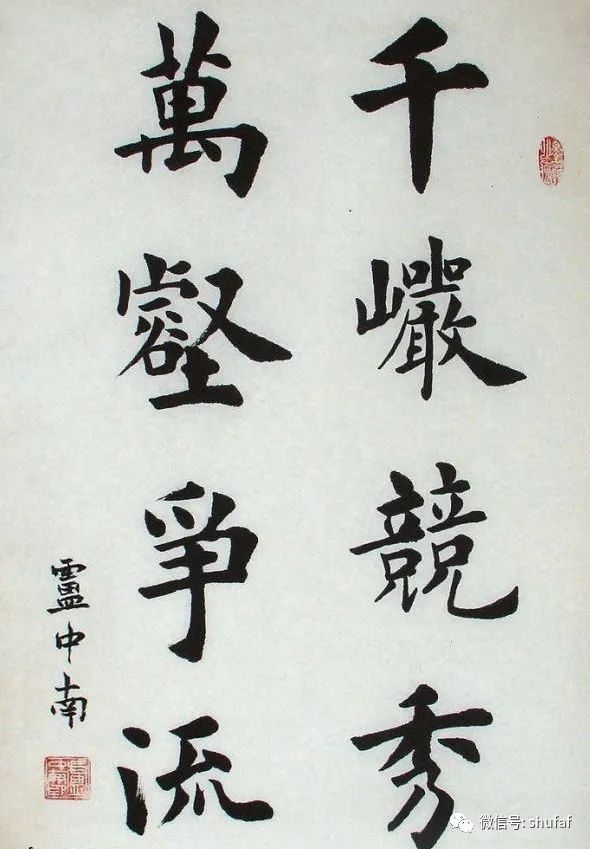 千巖競秀
萬壑爭流
盧中南
微信号: shufaf